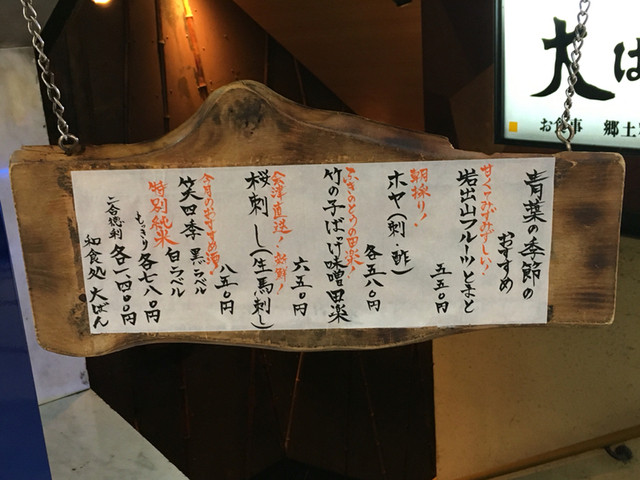 青葉の季節の
おすすめ
甘くてみずみずしい!
岩出山フルーツとまと
五五〇円
朝採り!
ホヤ(刺・酢)
各五八〇円
ふきのとうの田楽!
竹の子ばっけ味噌田楽
六五〇円
会津直送!新鮮!
桜刺し(生馬刺し)
八五〇円
今月のおすすめ酒!
笑四季 黒ラベル
白ラベル
特別純米
もっきり 各七八〇円
二合徳利 各一、四〇〇円
和食処 大ばん
大は
お食事 郷土